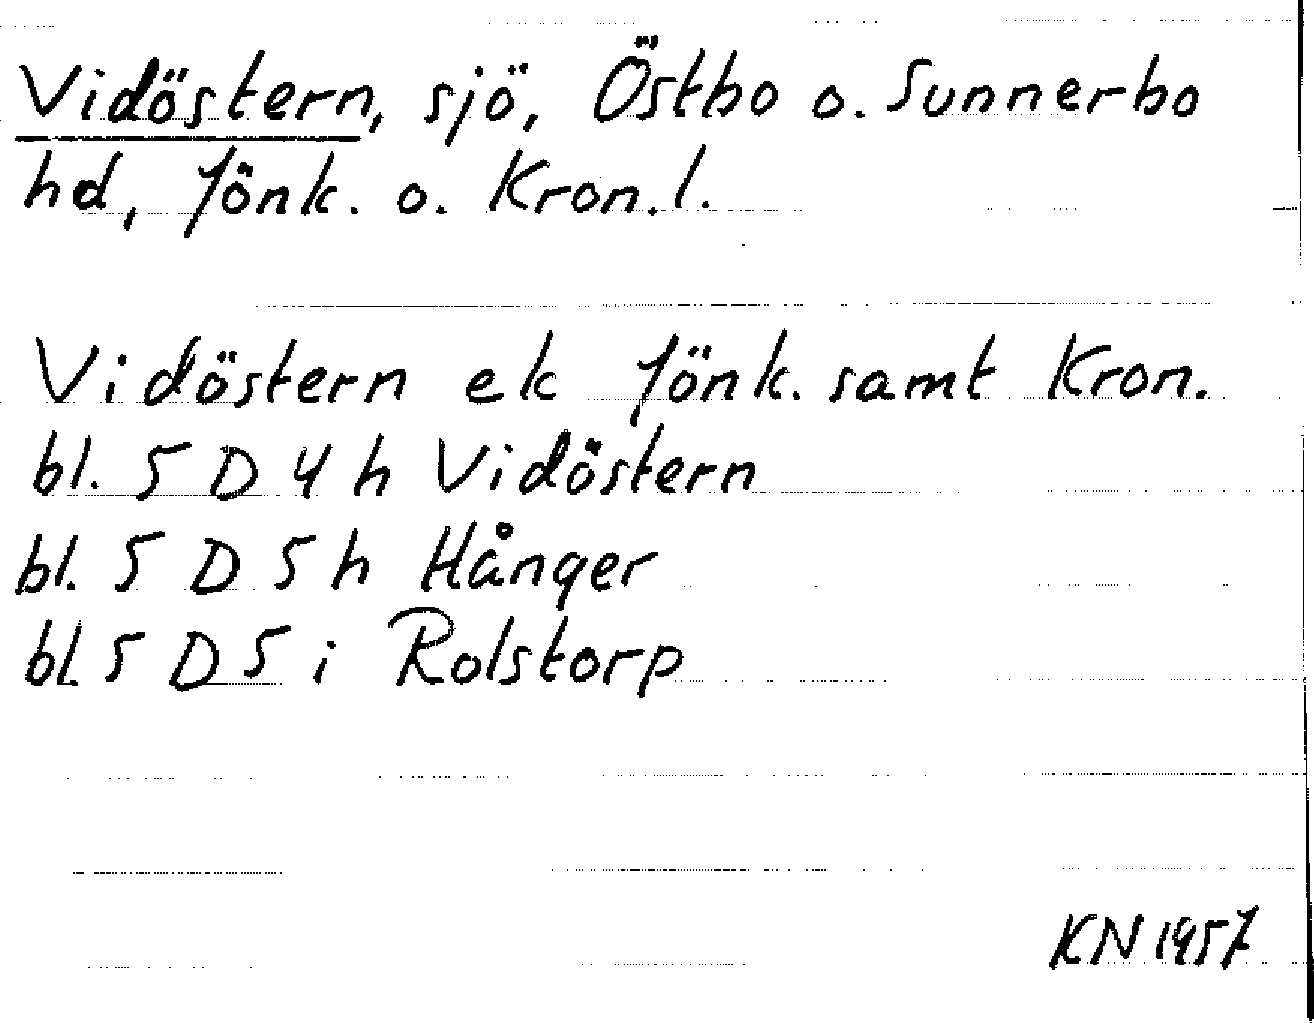 Vidöstern, sjö, Östbo o. Sunnerbo
hd, Jönk. o. Kron. l.
Vidöstern ek Jönk. samt Kron.
bl. 5 D 4 h Vidöstern
bl. 5 D 5 h Hånger
bl. 5 D 5 i Rolstorp
KN 1957